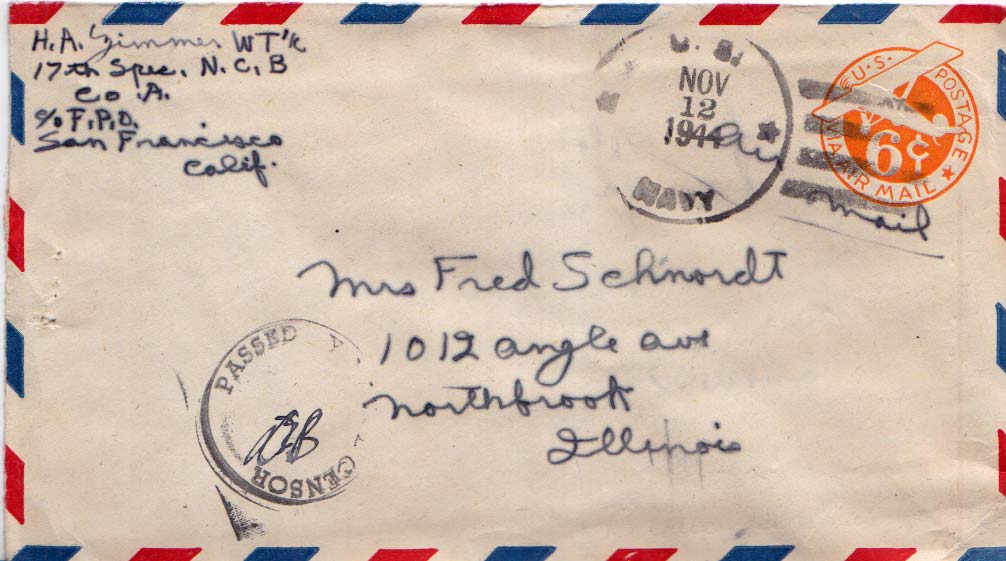 H.A. Zimmer WT
17th Spec. N.C.B
Co A.
c/o F.P.O.
San Francisco
Calif.
U.S.
NOV
12
1944
NAVY
U.S. POSTAGE
6¢
VIA AIR MAIL
Air
mail
Mrs Fred Schnordt
1012 angle ave
Northbrook
Illinois
PASSED
CENSOR